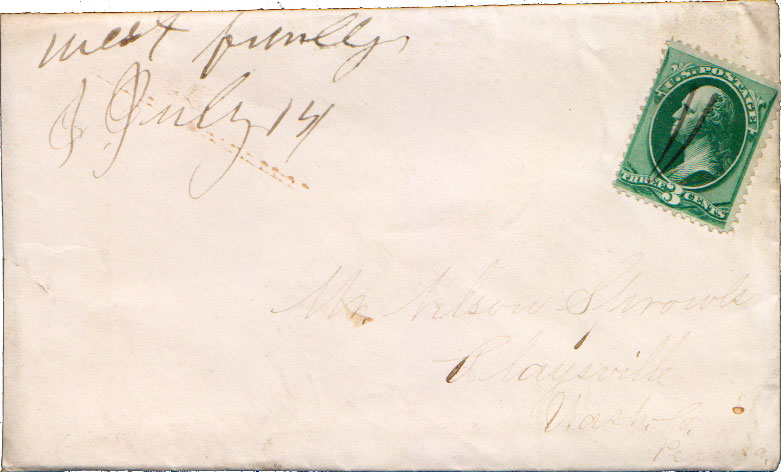 West Finley
July 14
U.S. POSTAGE
THREE 3 CENTS
Mr. Nelson Sprowls
Claysville
Wash. Co.
Penna